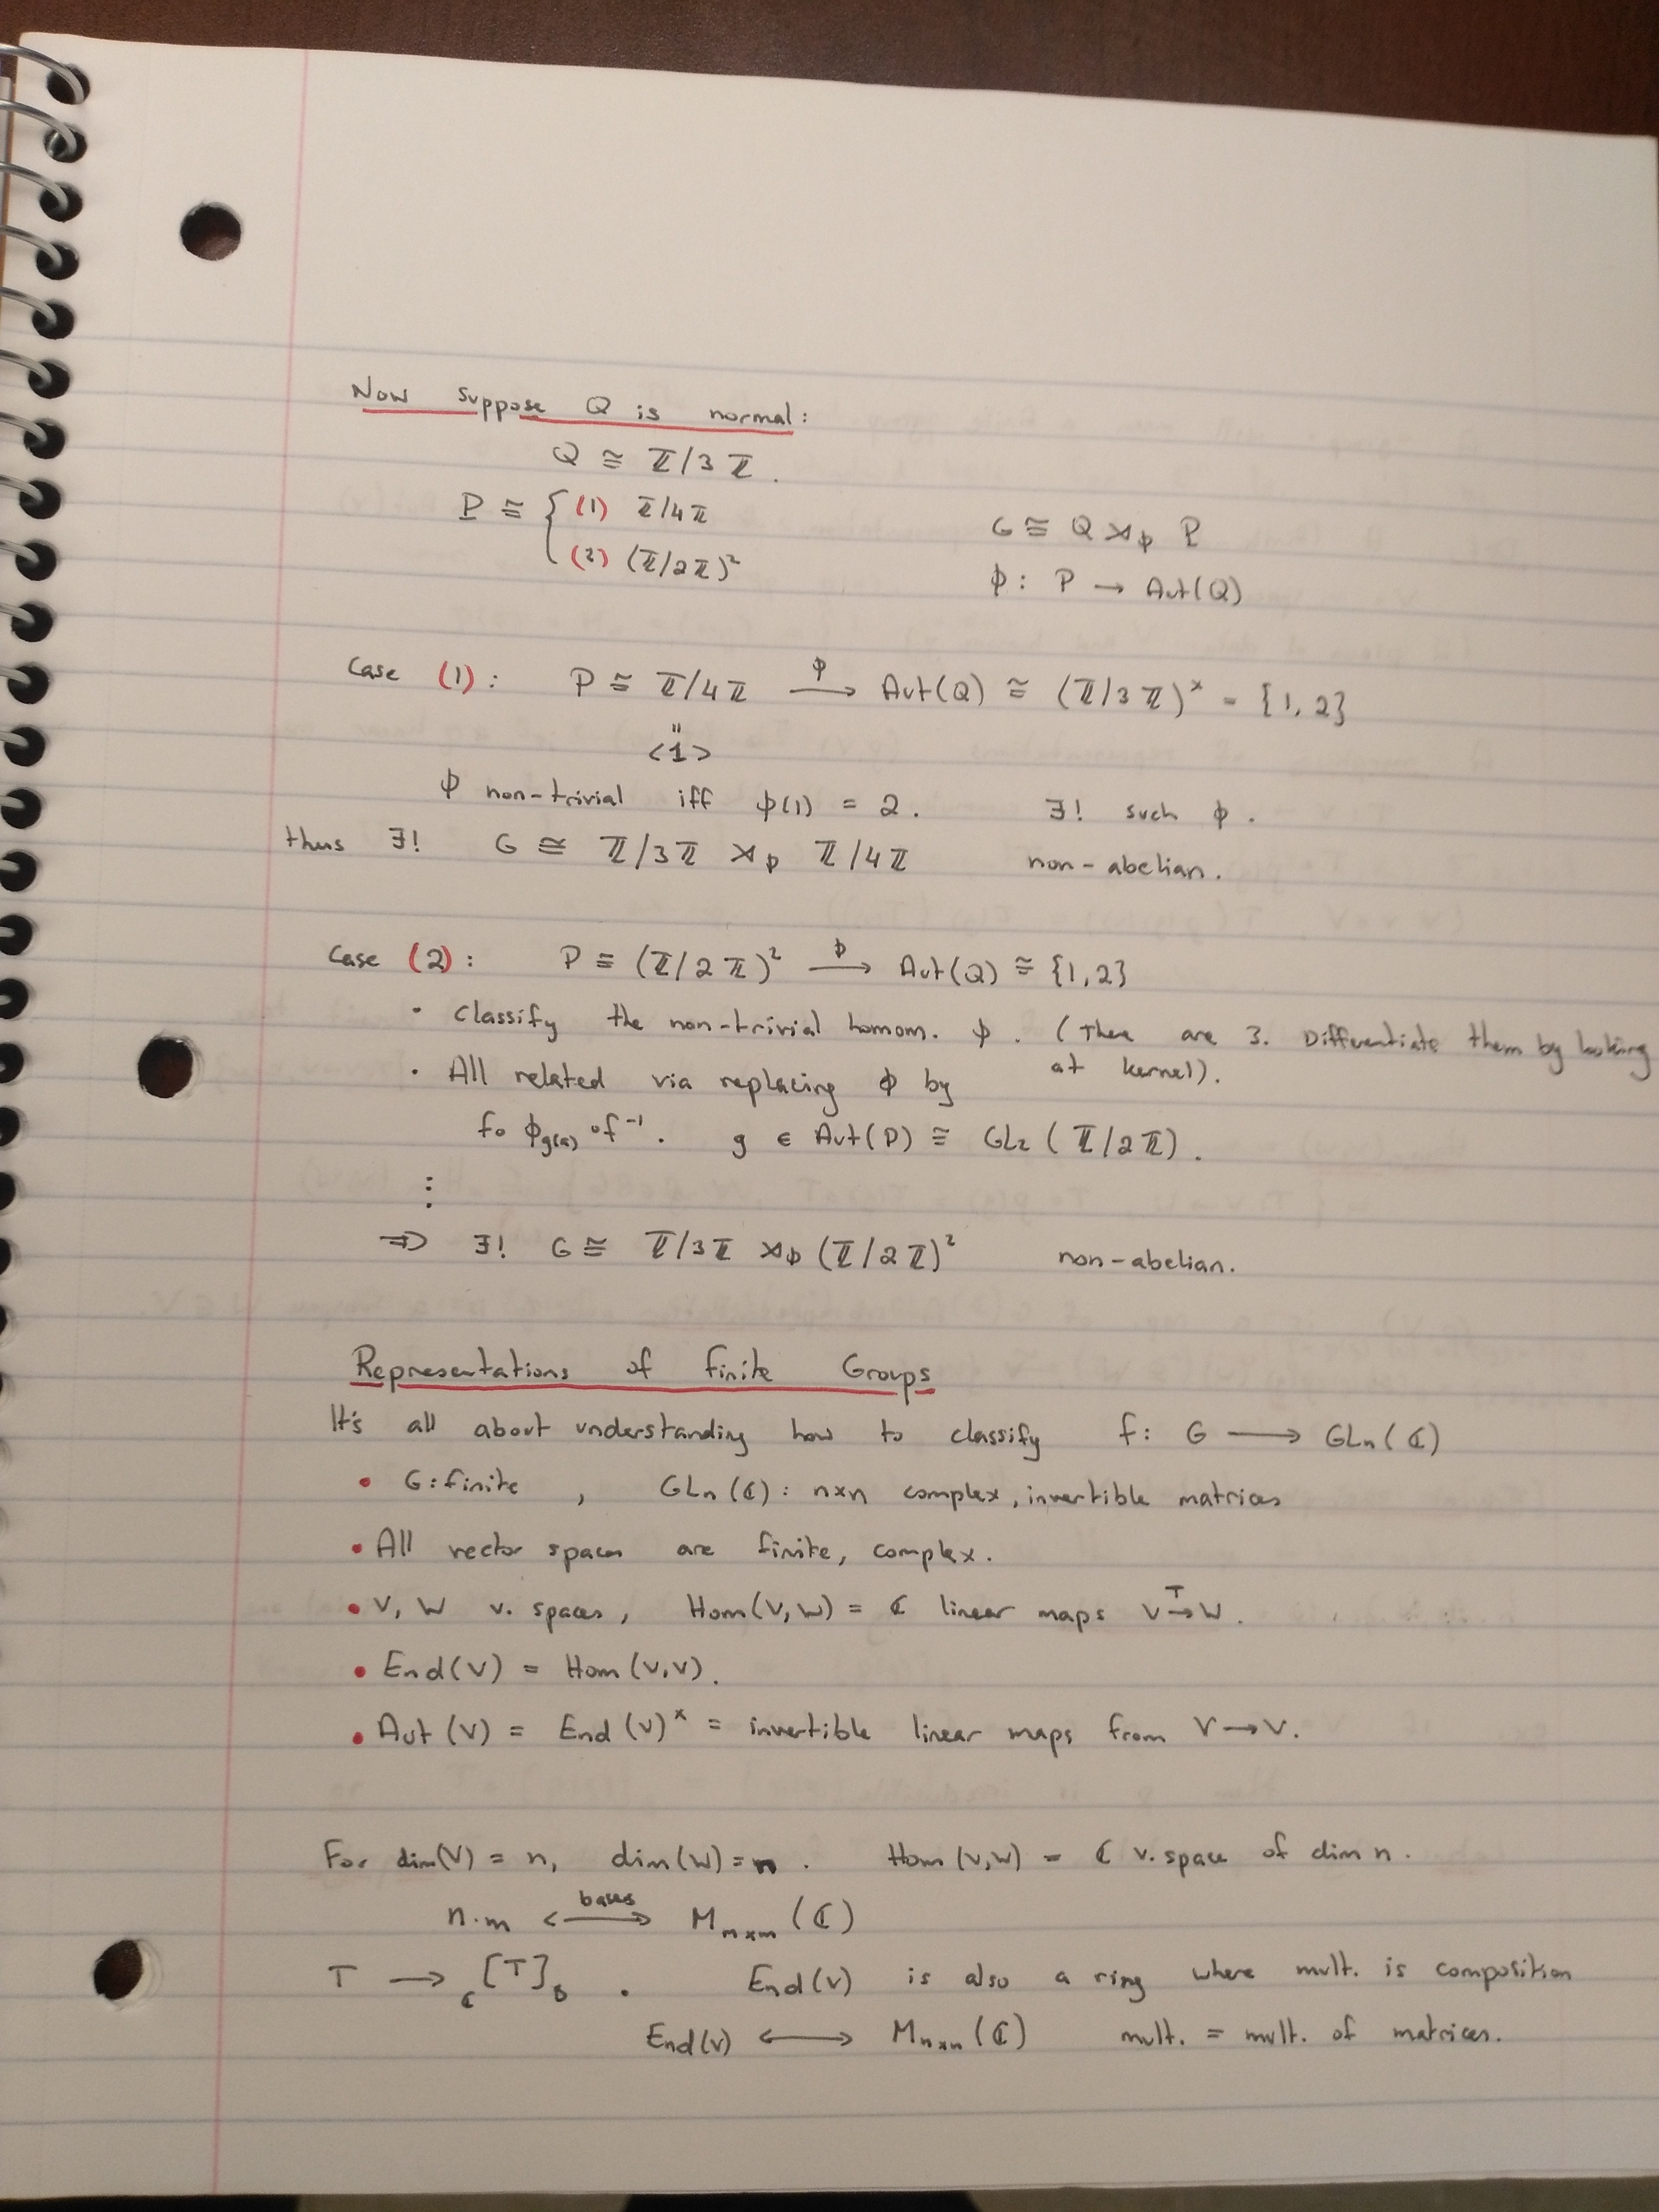 Now suppose Q is normal:
Q ≅ ℤ/3ℤ.
P ≅ { (1) ℤ/4ℤ
(2) (ℤ/2ℤ)²
G ≅ Q ⋊_ϕ P
ϕ: P → Aut(Q)
Case (1): P ≅ ℤ/4ℤ —ϕ→ Aut(Q) ≅ (ℤ/3ℤ)^x = {1, 2}
"
<1>
ϕ non-trivial iff ϕ(1) = 2. ∃! such ϕ.
thus ∃! G ≅ ℤ/3ℤ ⋊_ϕ ℤ/4ℤ non-abelian.
Case (2): P ≅ (ℤ/2ℤ)² —ϕ→ Aut(Q) ≅ {1,2}
· Classify the non-trivial homom. ϕ. (There are 3. Differentiate them by looking
at kernel).
· All related via replacing ϕ by
f∘ ϕ_g(a) ∘f⁻¹. g ∈ Aut(P) ≅ GL₂(ℤ/2ℤ).
⋮
⇒ ∃! G ≅ ℤ/3ℤ ⋊_ϕ (ℤ/2ℤ)² non-abelian.
Representations of finite Groups
It's all about understanding how to classify f: G ⟶ GLn(ℂ)
• G: finite, GLn(ℂ): n×n complex, invertible matrices
• All vector spaces are finite, complex.
• V, W v. spaces, Hom(V,W) = ℂ linear maps V –T→ W.
• End(V) = Hom(V,V).
• Aut(V) = End(V)^x = invertible linear maps from V→V.
For dim(V) = n, dim(W) = m. Hom(V,W) = ℂ v. space of dim n.
n·m <—bases—> M_m×m(ℂ)
T ⟶ _C[T]_B. End(V) is also a ring where mult. is composition
End(V) ⟷ M_n×n(ℂ) mult. = mult. of matrices.